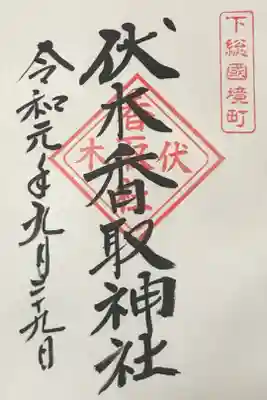 下総國境町
伏木香取神社
伏木
令和元年九月二十九日